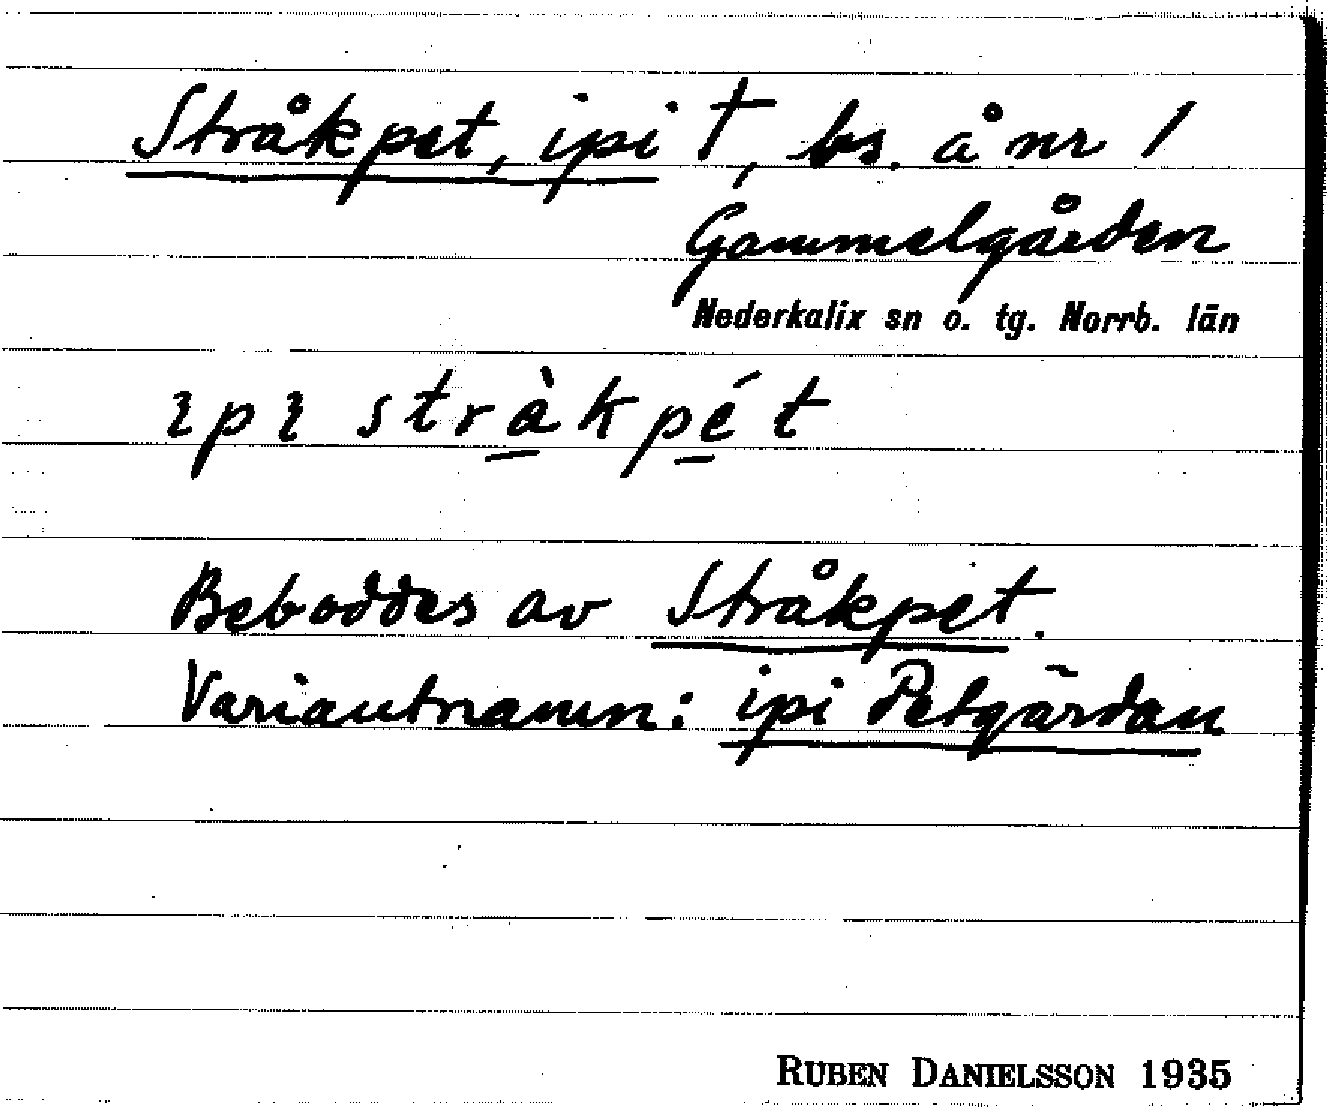 Stråkpet, ipi †, bs. å nr 1
Gammelgården
Nederkalix sn o. tg. Norrb. län
ꝛpꝛ stràkpét
Beboddes av Stråkpet.
Variantnamn: ipi Petgårdan
RUBEN DANIELSSON 1935